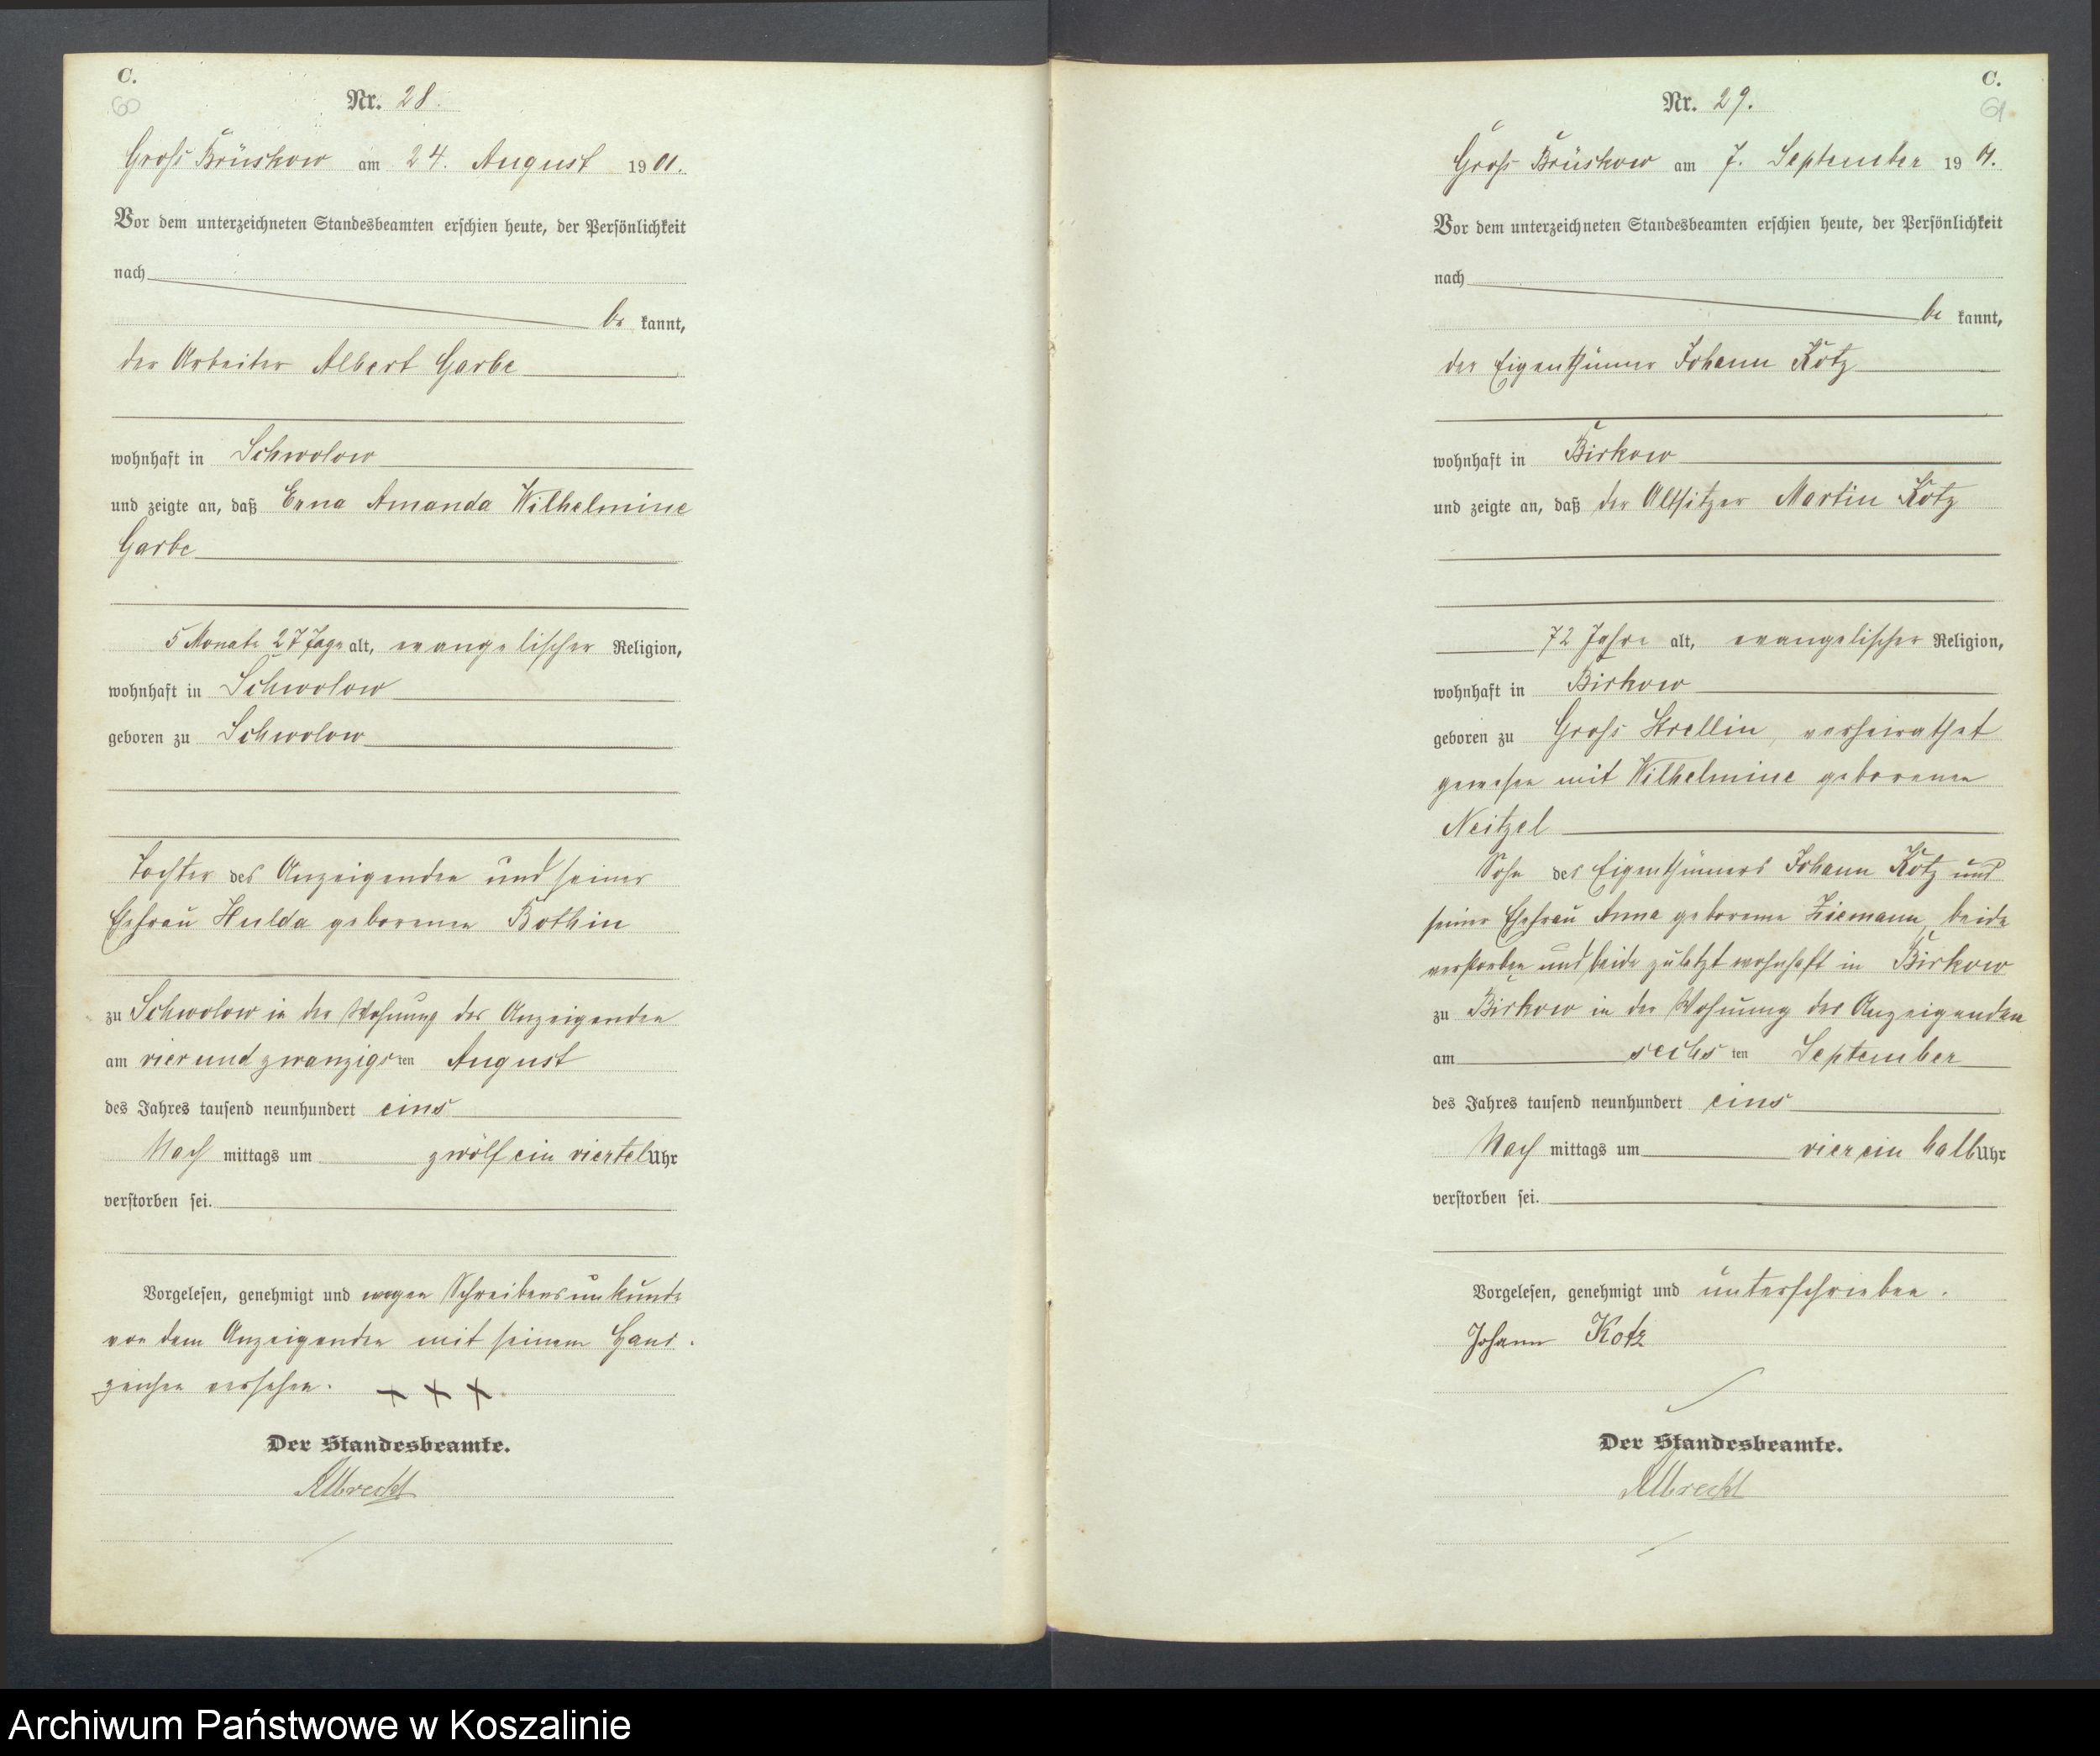 C.
60
Nr. 28.
Gross Brüskow am 24. August 1901.
Vor dem unterzeichneten Standesbeamten erschien heute, der Persönlichkeit
nach
be kannt,
der Arbeiter Albert Garbe
wohnhaft in Schwolow
und zeigte an, daß Erna Amanda Wilhelmine
Garbe
5 Monate 27 Tage alt, evangelischer Religion,
wohnhaft in Schwolow
geboren zu Schwolow
Tochter des Anzeigenden und seiner
Ehefrau Hulda geborenen Bothin
zu Schwolow in der Wohnung des Anzeigenden
am vier und zwanzigsten August
des Jahres tausend neunhundert eins
Nach mittags um zwölf ein viertel Uhr
verstorben sei.
Vorgelesen, genehmigt und wegen Schreibensunkunde
von dem Anzeigenden mit seinem Hand-
zeichen versehen. + + +
Der Standesbeamte.
Albrecht
C.
61
Nr. 29.
Gross Brüskow am 7. September 1901.
Vor dem unterzeichneten Standesbeamten erschien heute, der Persönlichkeit
nach
be kannt,
der Eigenthümer Johann Kotz
wohnhaft in Birkow
und zeigte an, daß der Altsitzer Martin Kotz
72 Jahre alt, evangelischer Religion,
wohnhaft in Birkow
geboren zu Gross Strellin, verheirathet
gewesen mit Wilhelmine geborenen
Neitzel
Sohn des Eigenthümers Johann Kotz und
seiner Ehefrau Anna geborene Ziemann, beide
verstorben und beide zuletzt wohnhaft in Birkow
zu Birkow in der Wohnung des Anzeigenden
am sechsten September
des Jahres tausend neunhundert eins
Nach mittags um vier ein halb Uhr
verstorben sei.
Vorgelesen, genehmigt und unterschrieben.
Johann Kotz
Der Standesbeamte.
Albrecht
Archiwum Państwowe w Koszalinie